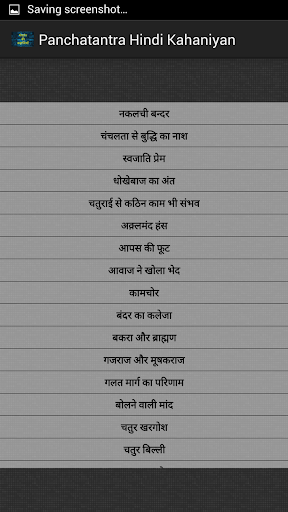 Saving screenshot...
Panchatantra Hindi Kahaniyan
नकलची बन्दर
चंचलता से बुद्धि का नाश
स्वजाति प्रेम
धोखेबाज का अंत
चतुराई से कठिन काम भी संभव
अक़्लमंद हंस
आपस की फूट
आवाज ने खोला भेद
कामचोर
बंदर का कलेजा
बकरा और ब्राह्मण
गजराज और मूषकराज
गलत मार्ग का परिणाम
बोलने वाली मांद
चतुर खरगोश
चतुर बिल्ली